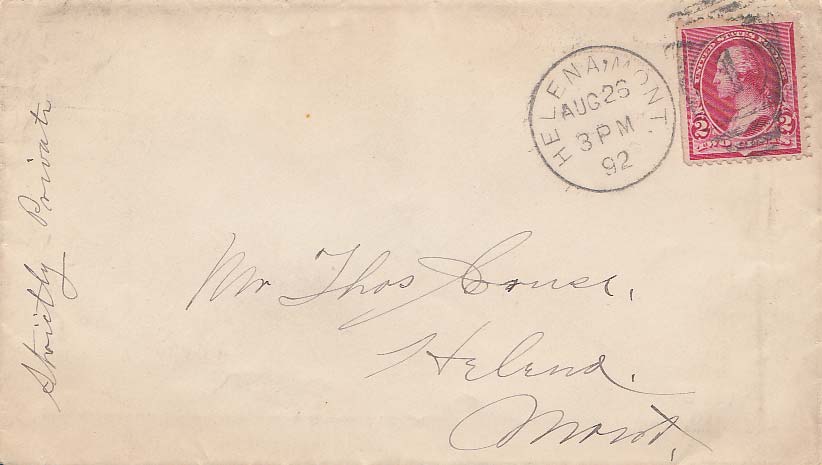 Strictly Private
HELENA, MONT.
AUG 26
3 PM
92
UNITED STATES POSTAGE
2 2
Mr Thos Cruse.
Helena.
Mont.